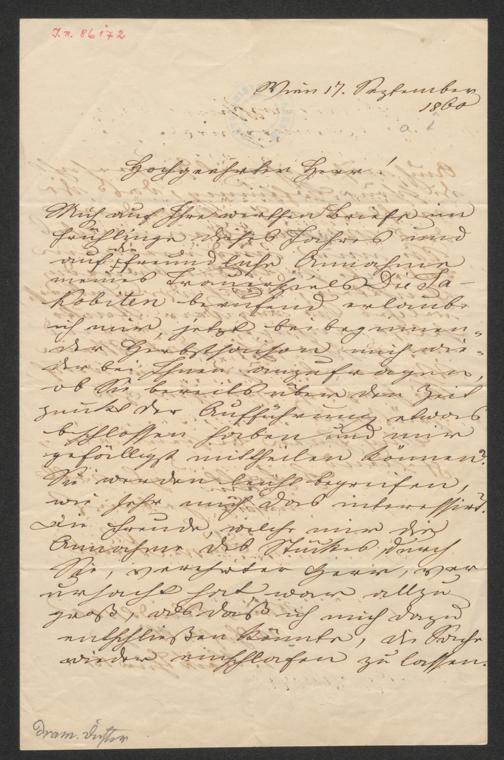 I.N. 86172
Wien 17. September
1860
Hochgeehrter Herr!
Mich auf Ihre werthen Briefe im
Frühlinge dieses Jahres und
auf die freundliche Annahme
meines Trauerspiels Die Ja-
kobiten berufend erlaube
ich mir, jetzt bei beginnen-
der Herbstsaison mich wie-
der bei Ihnen anzufragen,
ob Sie bereits über den Zeit
punkt der Aufführung etwas
beschlossen haben und mir
gefälligst mittheilen können?
Sie werden leicht begreifen,
wie sehr mich das interessirt.
Die Freude, welche mir die
Annahme des Stückes durch
Sie, verehrter Herr, ver
ursacht hat war allzu
groß als daß ich mich dazu
entschließen könnte, die Sache
wieder einschlafen zu lassen.
Dram.